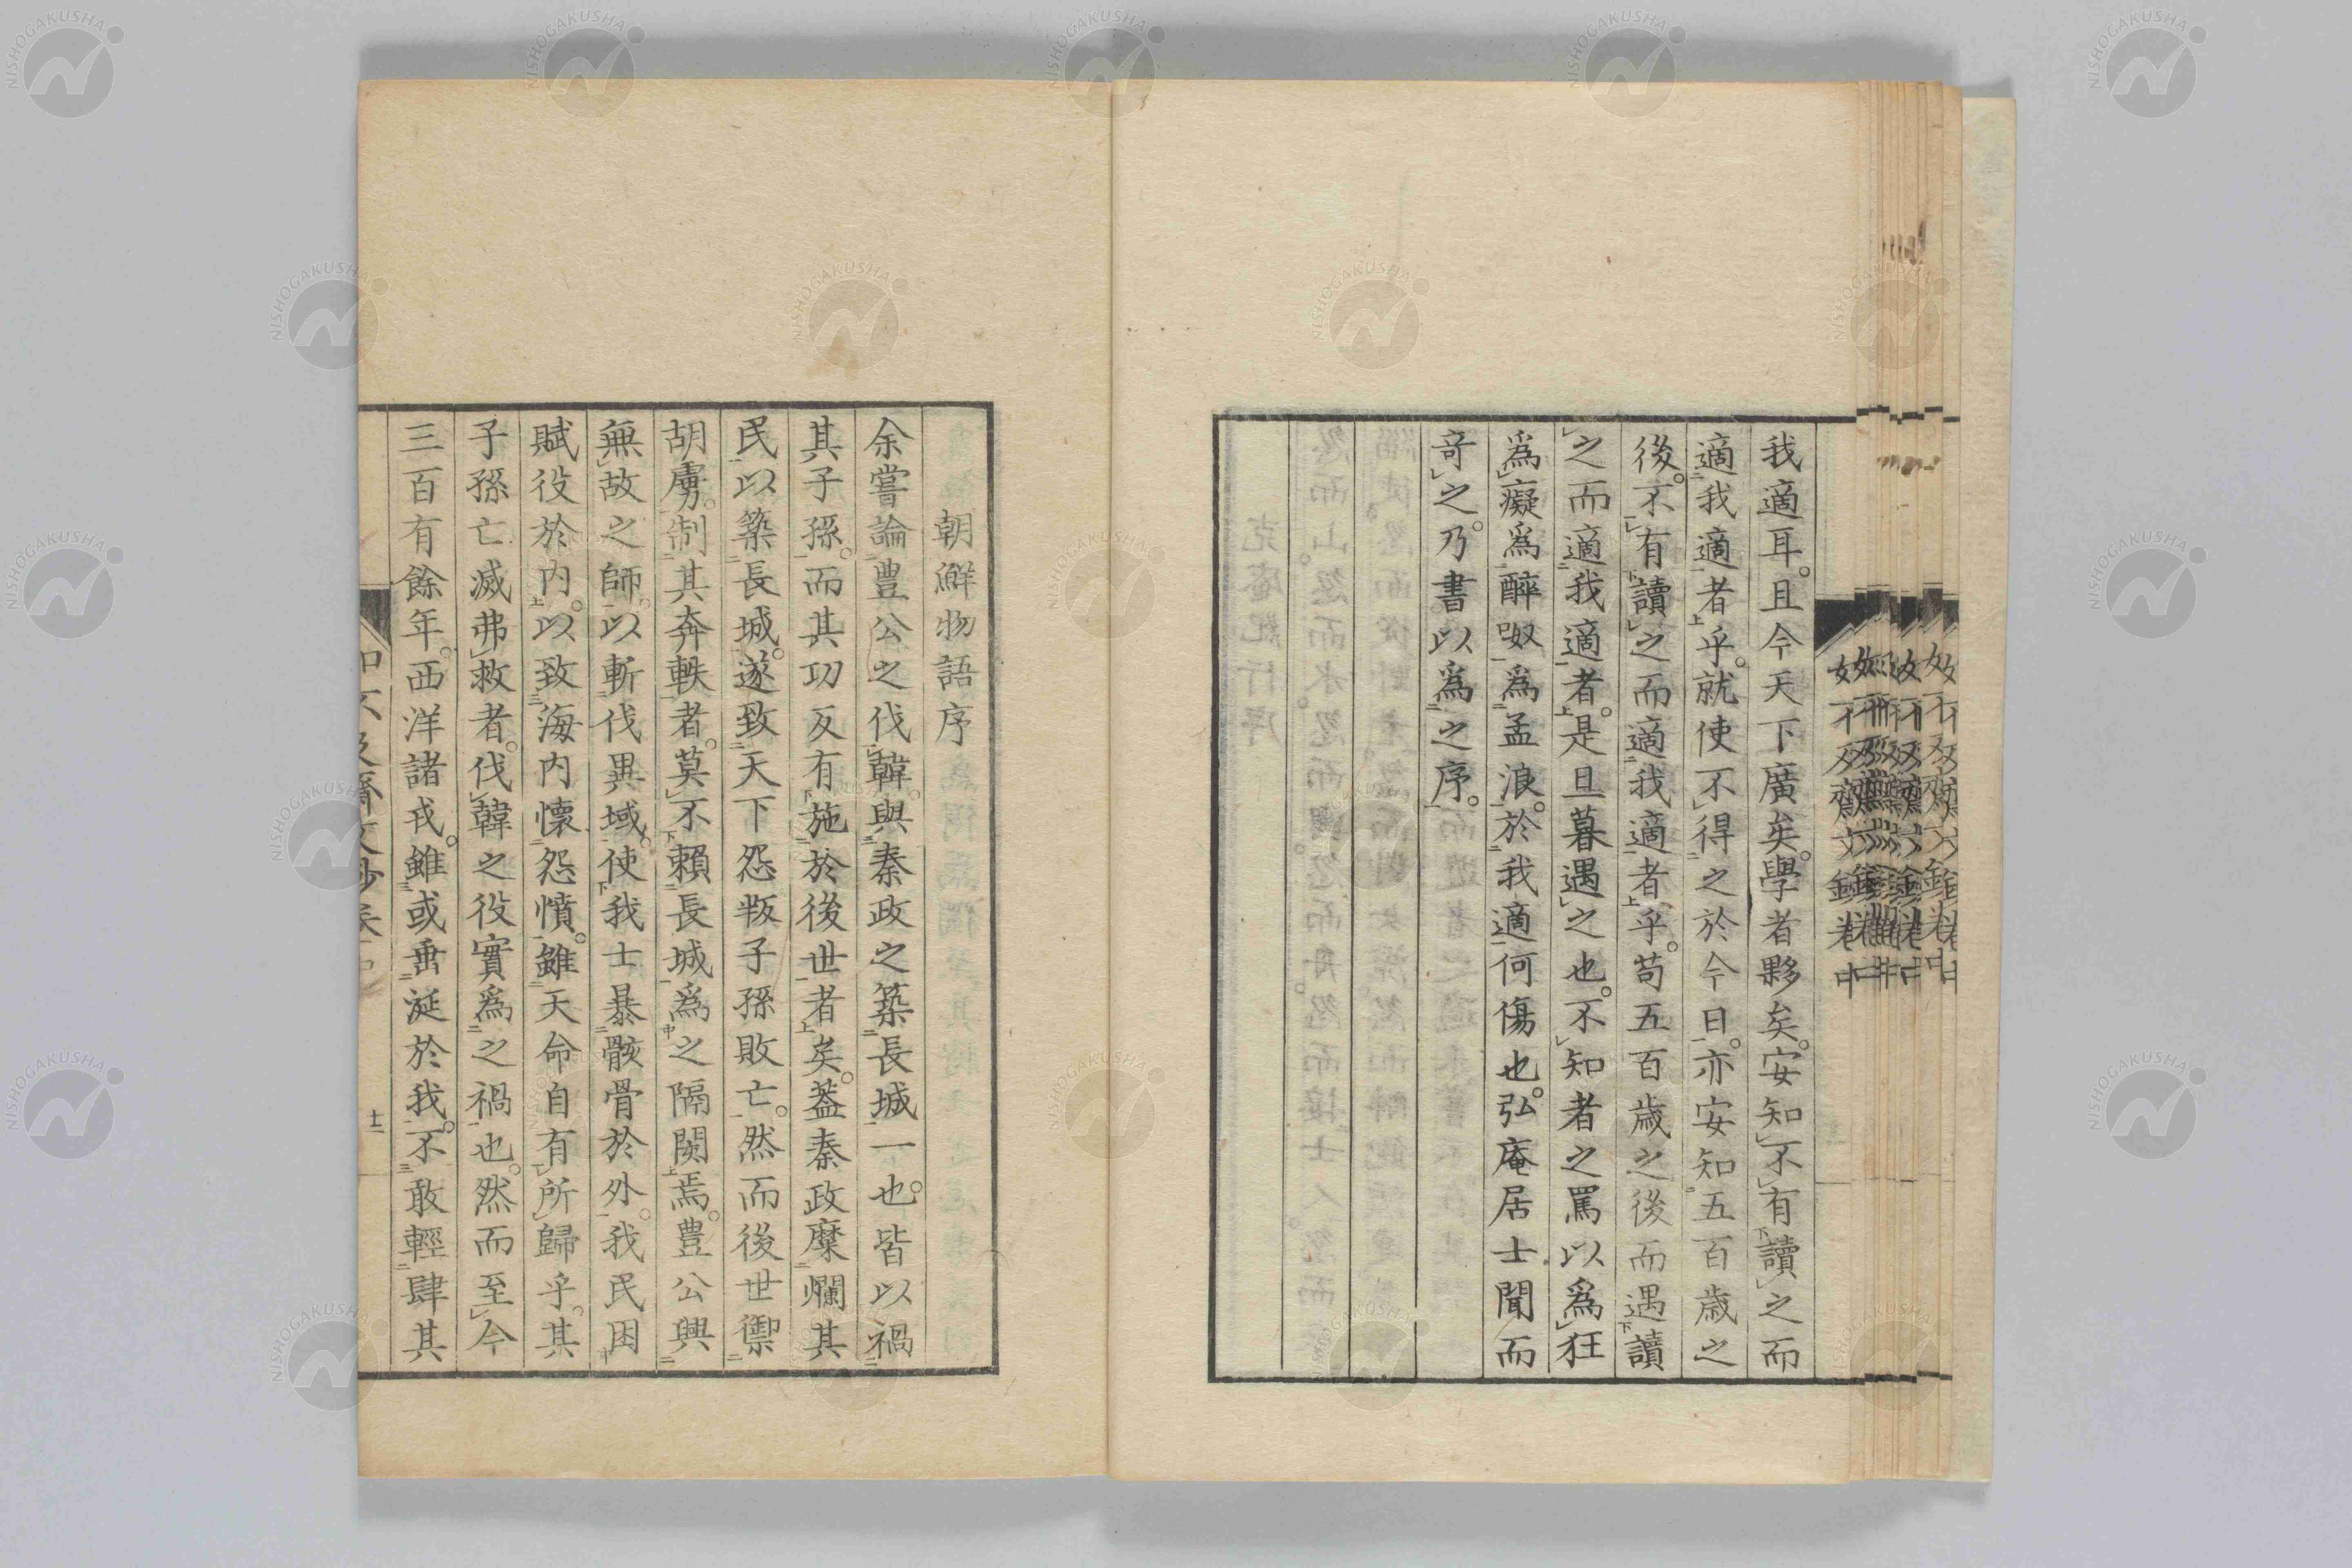 我適耳。且今天下廣矣。學者夥矣。安知不有讀之而
適我適者乎。就使不得之於今日。亦安知五百歲之
後。不有讀之而適我適者乎。苟五百歲之後而遇讀
之而適我適者。是旦暮遇之也。不知者之罵以爲狂
爲癡爲醉呶爲孟浪。於我適何傷也。弘庵居士聞而
奇之。乃書以爲之序。
朝鮮物語序
余嘗論豊公之伐韓與秦政之築長城一也。皆以禍
其子孫。而其功反有施於後世者矣。葢秦政糜爛其
民以築長城。遂致天下怨叛子孫敗亡。然而後世禦
胡虜。制其奔軼者。莫不賴長城爲之隔閡焉。豊公興
無故之師。以斬伐異域。使我士暴骸骨於外。我民困
賦役於内。以致海内懷怨憤。雖天命自有所歸乎。其
子孫亡滅弗救者。伐韓之役實爲之禍也。然而至今
三百有餘年。西洋諸戎。雖或垂涎於我。不敢輕肆其
如不及齋文鈔卷中
十二
NISHOGAKUSHA